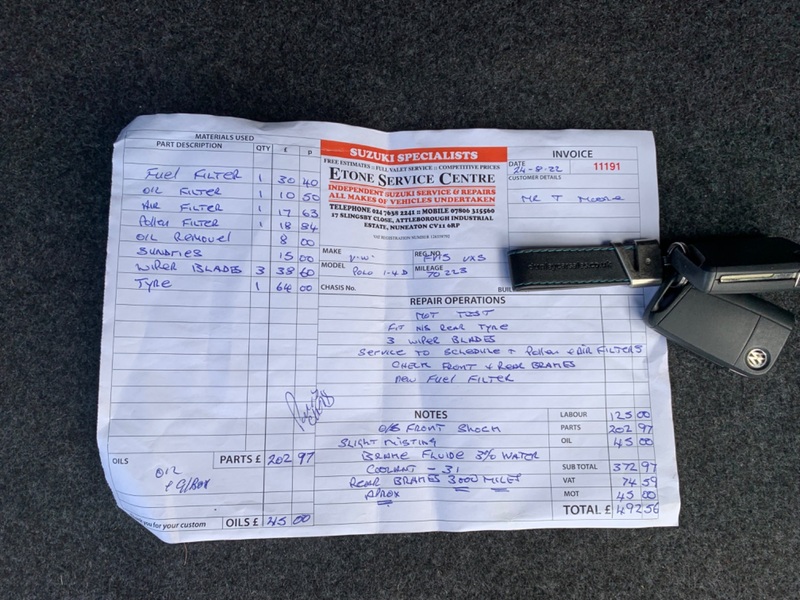 MATERIALS USED
PART DESCRIPTION QTY £ P
Fuel Filter 1 30 40
Oil Filter 1 10 50
Air Filter 1 17 63
Pollen Filter 1 18 84
Oil Removel 8 00
Sundries 15 00
Wiper Blades 3 38 60
Tyre 1 64 00
PARTS £ 202 97
OILS
Oil
OILS £ 45 00
you for your custom
SUZUKI SPECIALISTS
FREE ESTIMATES :: FULL VALET SERVICE :: COMPETITIVE PRICES
ETONE SERVICE CENTRE
INDEPENDENT SUZUKI SERVICE & REPAIRS
ALL MAKES OF VEHICLES UNDERTAKEN
TELEPHONE 024 7638 2241 :: MOBILE 07806 315560
17 SLINGSBY CLOSE, ATTLEBOROUGH INDUSTRIAL
ESTATE, NUNEATON CV11 6RP
VAT REGISTRATION NUMBER
INVOICE
DATE 24-8-22 11191
CUSTOMER DETAILS
Mr T
MAKE V.W. REG.NO. VXS
MODEL Polo 1-4 D MILEAGE 70223
CHASIS No.
REPAIR OPERATIONS
MOT TEST
Fit N/S Rear Tyre
3 Wiper Blades
Service to Schedule + Pollen + Air Filters
Check Front + Rear Brakes
New Fuel Filter
NOTES
O/S Front Shock
Slight Misting
Brake Fluide 3% Water
Coolant - 31
Rear Brakes 3000 Miles
Aprox
LABOUR 125 00
PARTS 202 97
OIL 45 00
SUB TOTAL 372 97
VAT 74 59
MOT 45 00
TOTAL £ 492 56